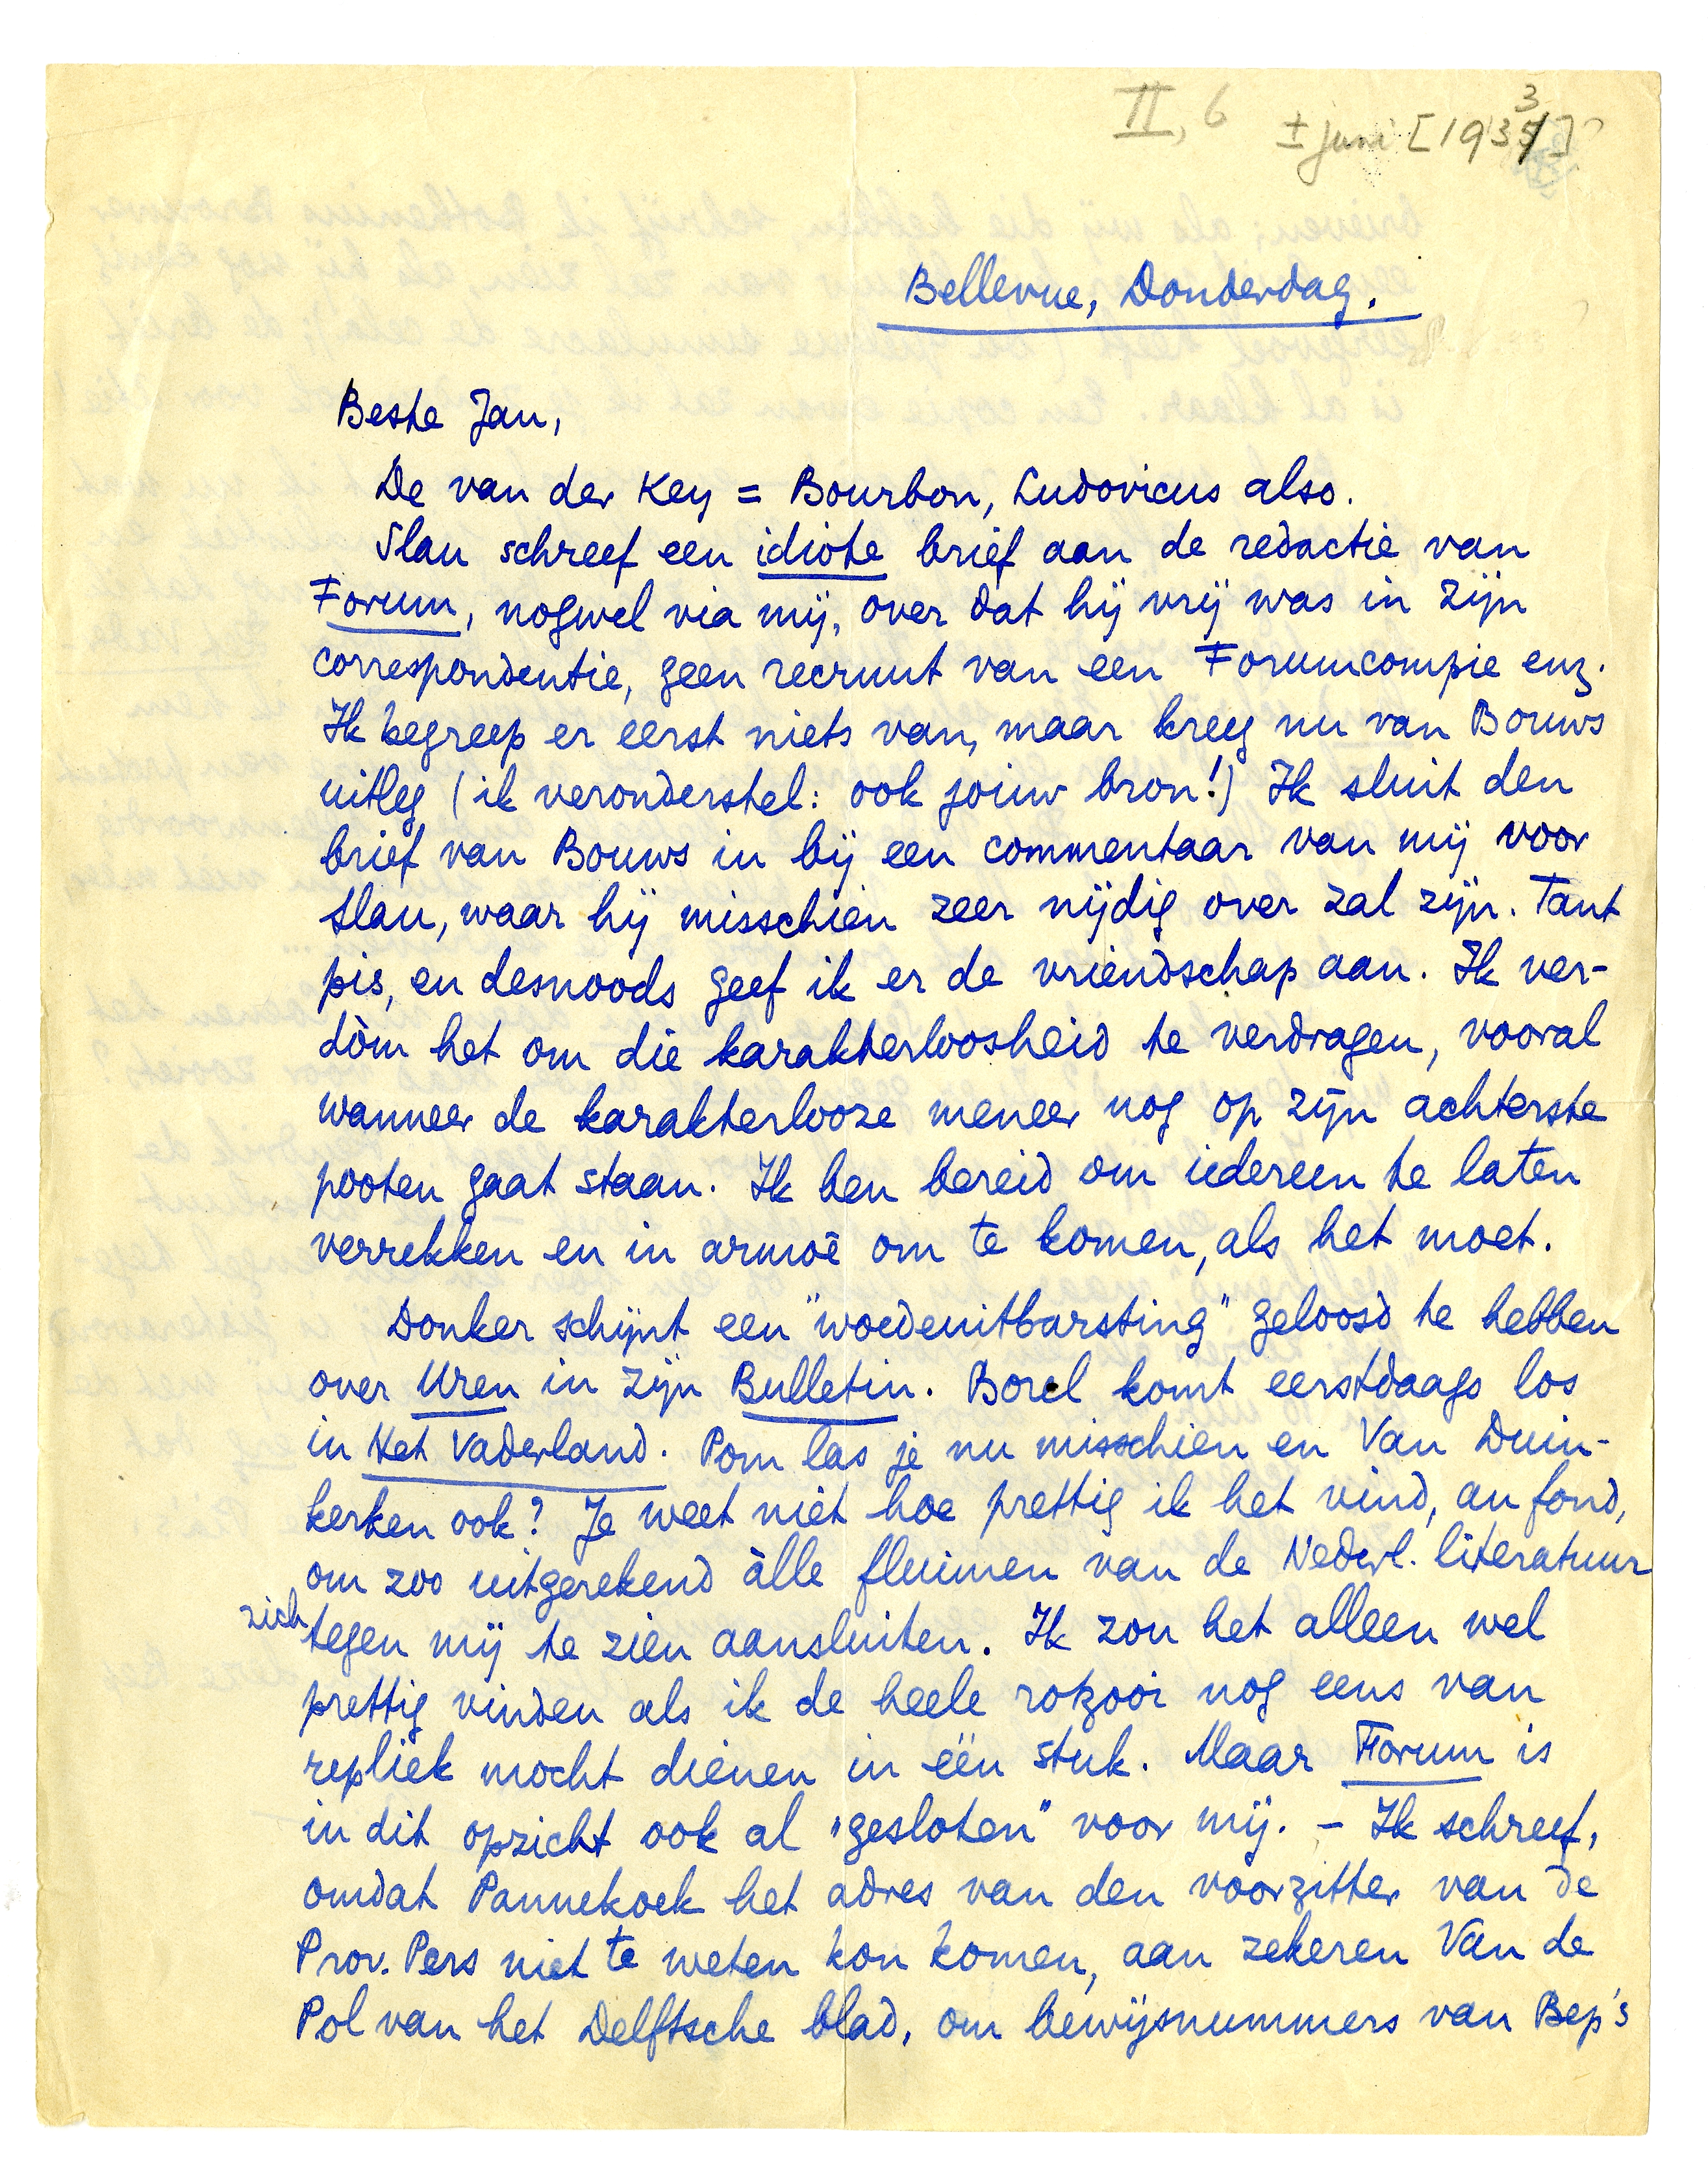 II, 6 ± juni [1933]?
Bellevue, Donderdag.
Beste Jan,
De van der Key = Bourbon, Ludovicus also.
Slau schreef een idiote brief aan de redactie van
Forum, nogwel via mij, over dat hij vrij was in zijn
correspondentie, geen recruut van een Forumcompie enz.
Ik begreep er eerst niets van, maar kreeg nu van Bouws
uitleg (ik veronderstel: ook jouw bron!) Ik sluit den
brief van Bouws in bij een commentaar van mij voor
Slau, waar hij misschien zeer nijdig over zal zijn. Tant
pis, en desnoods geef ik er de vriendschap aan. Ik ver-
dòm het om die karakterloosheid te verdragen, vooral
wanneer de karakterlooze meneer nog op zijn achterste
pooten gaat staan. Ik ben bereid om iedereen te laten
verrekken en in armoê om te komen, als het moet.
Donker schijnt een "woedeuitbarsting" geloosd te hebben
over Uren in zijn Bulletin. Borel komt eerstdaags los
in Het Vaderland. Pom las je nu misschien en Van Duin-
kerken ook? Je weet niet hoe prettig ik het vind, au fond,
om zoo uitgerekend àlle fluimen van de Nederl. literatuur
zich tegen mij te zien aansluiten. Ik zou het alleen wel
prettig vinden als ik de heele rotzooi nog eens van
repliek mocht dienen in één stuk. Maar Forum is
in dit opzicht ook al "gesloten" voor mij. – Ik schreef,
omdat Pannekoek het adres van den voorzitter van de
Prov. Pers niet te weten kon komen, aan zekeren Van de
Pol van het Delftsche blad, om bewijsnummers van Bep's